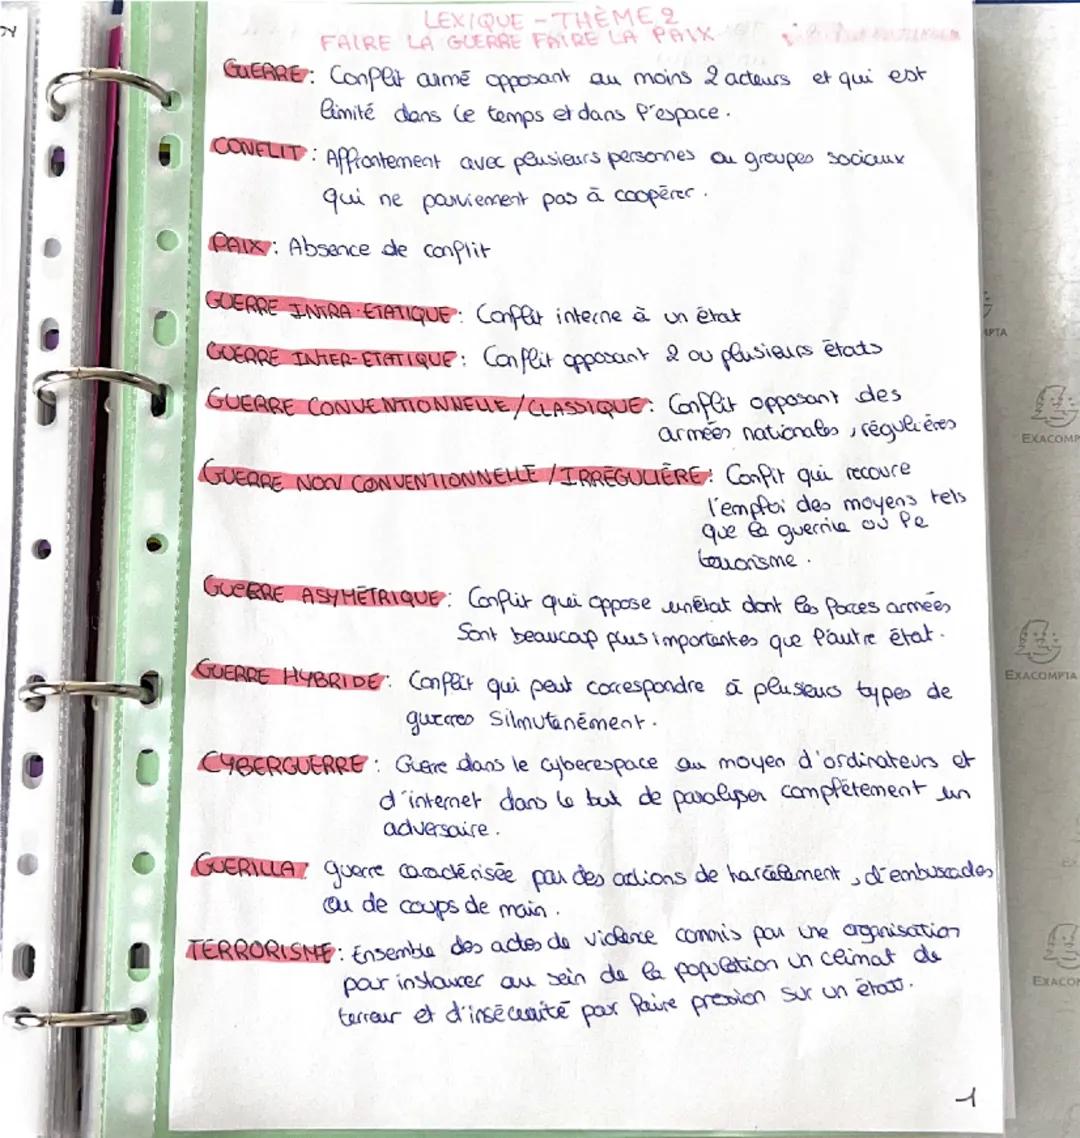 LEXIQUE - THÈME 2
FAIRE LA GUERRE FAIRE LA PAIX
GUERRE : Conflit armé opposant au moins 2 acteurs et qui est
limité dans le temps et dans l'espace.
CONFLIT : Affrontement avec plusieurs personnes ou groupes sociaux
qui ne parviement pas à coopérer.
PAIX : Absence de conflit
GUERRE INTRA-ETATIQUE : Conflit interne à un état
GUERRE INTER-ETATIQUE : Conflit opposant 2 ou plusieurs états
GUERRE CONVENTIONNELLE/CLASSIQUE : Conflit opposant des
armées nationales, régulières
GUERRE NON CONVENTIONNELLE / IRRÉGULIÈRE : Conflit qui recoure
l'emploi des moyens tels
que la guerrila ou le
terrorisme.
GUERRE ASYMÉTRIQUE : Conflit qui oppose un état dont les forces armées
sont beaucoup plus importantes que l'autre état.
GUERRE HYBRIDE : Conflit qui peut correspondre à plusieurs types de
guerres silmutanément.
CYBERGUERRE : Guerre dans le cyberespace au moyen d'ordinateurs et
d'internet dans le but de paralyser complètement un
adversaire.
GUERILLA : guerre caractérisée par des actions de harcèlement, d'embuscades
ou de coups de main.
TERRORISME : Ensemble des actes de violence commis par une organisation
pour instaurer au sein de la population un climat de
terreur et d'insécurité par faire pression sur un état.
1
EXACOMPTA